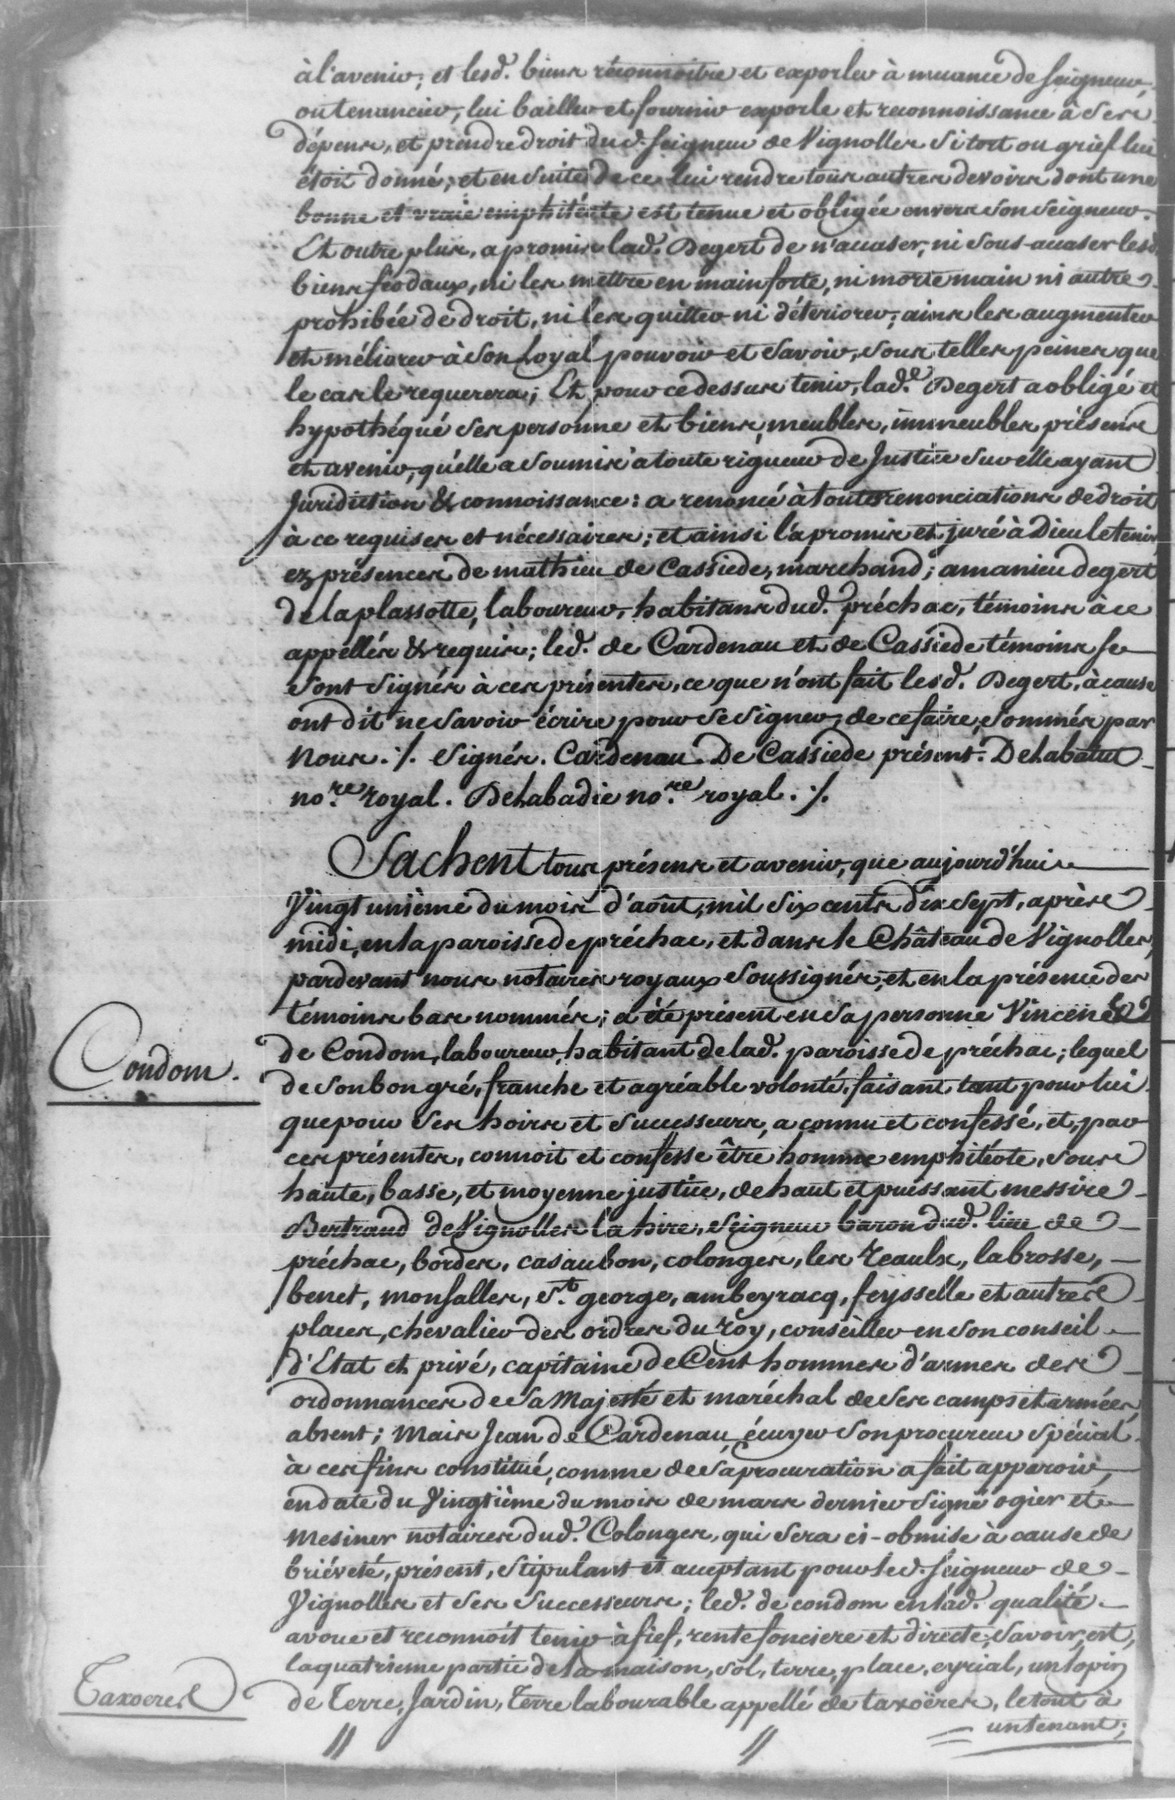 à l'avenir; et lesd. biens réconnoitre et exporler à muance de seigneur,
ou tenancier, lui bailler et fournir exporle et reconnoissance à ses
dépens, et prendre droit dud. seigneur de Vignolles si tort ou grief lui
étoit donné; et en suite de ce lui rendre tous autres devoirs dont une
bonne et vraie emphitéote est tenue et obligée envers son seigneur.
Et outre plus, a promis lad. Degert de n'acaser, ni sous-acaser lesd.
biens féodaux, ni les mettre en main forte, ni morte main ni autre
prohibée de droit, ni les quitter ni déteriorer; ains les augmenter
et méliorer à son loyal pouvoir et savoir, sous telles peines que
le cas le requerera; Et pour ce dessus tenir, lad.e Degert a obligé et
hypothéqué ses personne et biens, meubles, immeubles, présens
et avenir, qu'elle a soumis à toute rigueur de Justice sur elle ayant
Juridiction & connoissance: a renoncé à toutes renonciations de droit
à ce requises et nécessaires; et ainsi l'a promis et juré à Dieu le tenir,
ez présences de mathieu de Cassiede, marchand; amanieu degert
de laplassotte, laboureur, habitans dud. préchac, témoins à ce
appellés & requis; led. de Cardenau et de Cassiede témoins se
sont signés à ces présentes, ce que n'ont fait lesd. Degert, à cause
ont dit ne savoir écrire pour se signer, de ce faire, sommés par
Nous. ·/. Signés. Cardenau. De Cassiede présent. Delabatut
no.re royal. Delabadie no.re royal. ·/.
Sachent tous présens et avenir, que aujourd'hui
Vingt unième du mois d'août, mil six cents dix sept, après
midi, en la paroisse de préchac, et dans le Château de Vignolles,
pardevant nous notaires royaux soussignés, et en la présence des
témoins bas nommés; a été présent en sa personne Vincent
Condom.
de Condom, laboureur, habitant de lad. paroisse de préchac; lequel
de son bon gré, franche et agréable volonté, faisant tant pour lui
que pour ses hoirs et successeurs, a connu et confessé, et, par
ces présentes, connoit et confesse être homme emphitéote, sous
haute, basse, et moyenne justice, de haut et puissant messire
Bertrand de Vignolles la hire, seigneur baron dud. lieu de
préchac, bordes, casaubon, colonges, les reaulx, labrosse,
benet, monsalles, St. george, ambeyracq, feÿsselle et autres
places, chevalier des ordres du roy, conseiller en son conseil
d'Etat et privé, capitaine de Cent hommes d'armes des
ordonnances de Sa Majesté et maréchal de ses camps et armées,
absent; Mais Jean de Cardenau, écuyer son procureur spécial
à ces fins constitué, comme de sa procuration a fait apparoir,
en date du Vingtième du mois de mars dernier signé ogier et
Mesiner notaires dud. Colonges, qui sera ci-obmise à cause de
briéveté, présent, stipulant et acceptant pour led. seigneur de
Vignolles et ses successeurs; led. de condom en lad. qualité
avoue et reconnoit tenir à fief, rente fonciere et directe, savoir, est,
la quatrieme partie de la maison, sol, terre, place, eyrial, un lopin
Taxoeres
de Terre, Jardin, Terre labourable appellé de taxoëres, le tout à
un tenant;